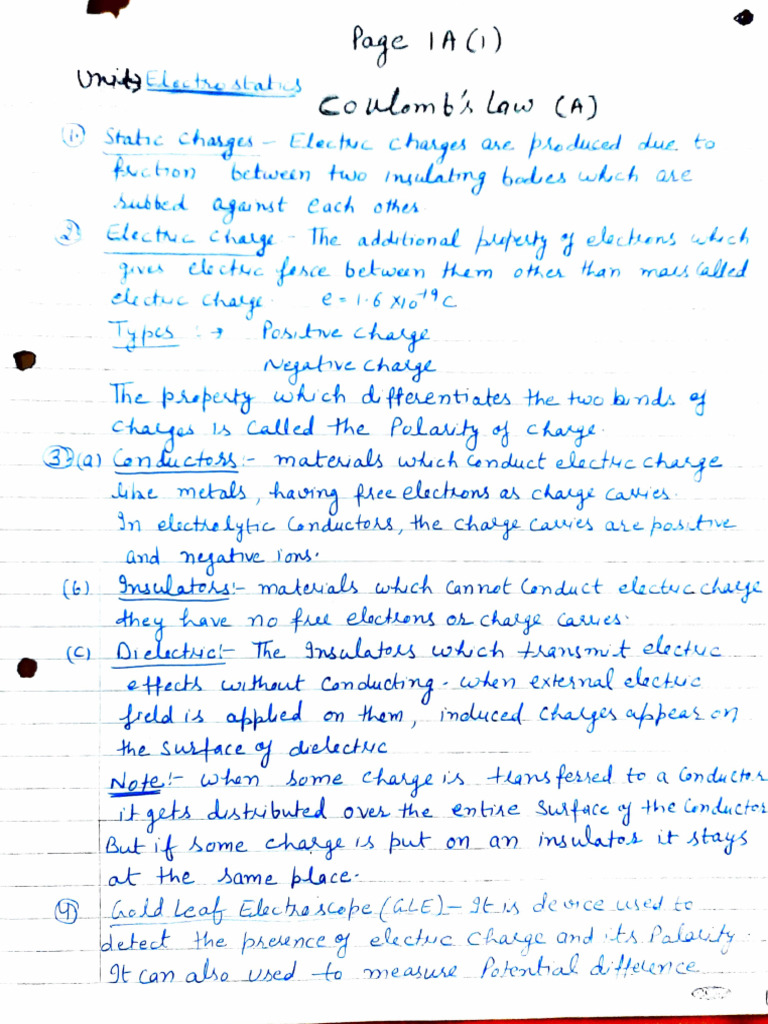 Page 1A(1)
Unit Electrostatics
Coulomb's Law (A)
1. Static Charges - Electric charges are produced due to
friction between two insulating bodies which are
rubbed against each other.
2. Electric Charge - The additional property of electrons which
gives electric force between them other than mass called
electric charge. e = 1.6 x10⁻¹⁹C
Types :→ Positive charge
Negative charge
The property which differentiates the two kinds of
charges is called the Polarity of charge.
3. (a) Conductors:- materials which conduct electric charge
like metals, having free electrons as charge carries.
In electrolytic conductors, the charge carries are positive
and negative ions.
(b) Insulators:- materials which cannot conduct electric charge
they have no free electrons or charge carries.
(c) Dielectric:- The Insulators which transmit electric
effects without conducting. when external electric
field is applied on them, induced charges appear on
the surface of dielectric
Note:- when some charge is transferred to a conductor
it gets distributed over the entire surface of the conductor
But if some charge is put on an insulator it stays
at the same place.
4) Gold Leaf Electroscope (GLE) - It is device used to
detect the presence of electric charge and its Polarity.
It can also used to measure Potential difference